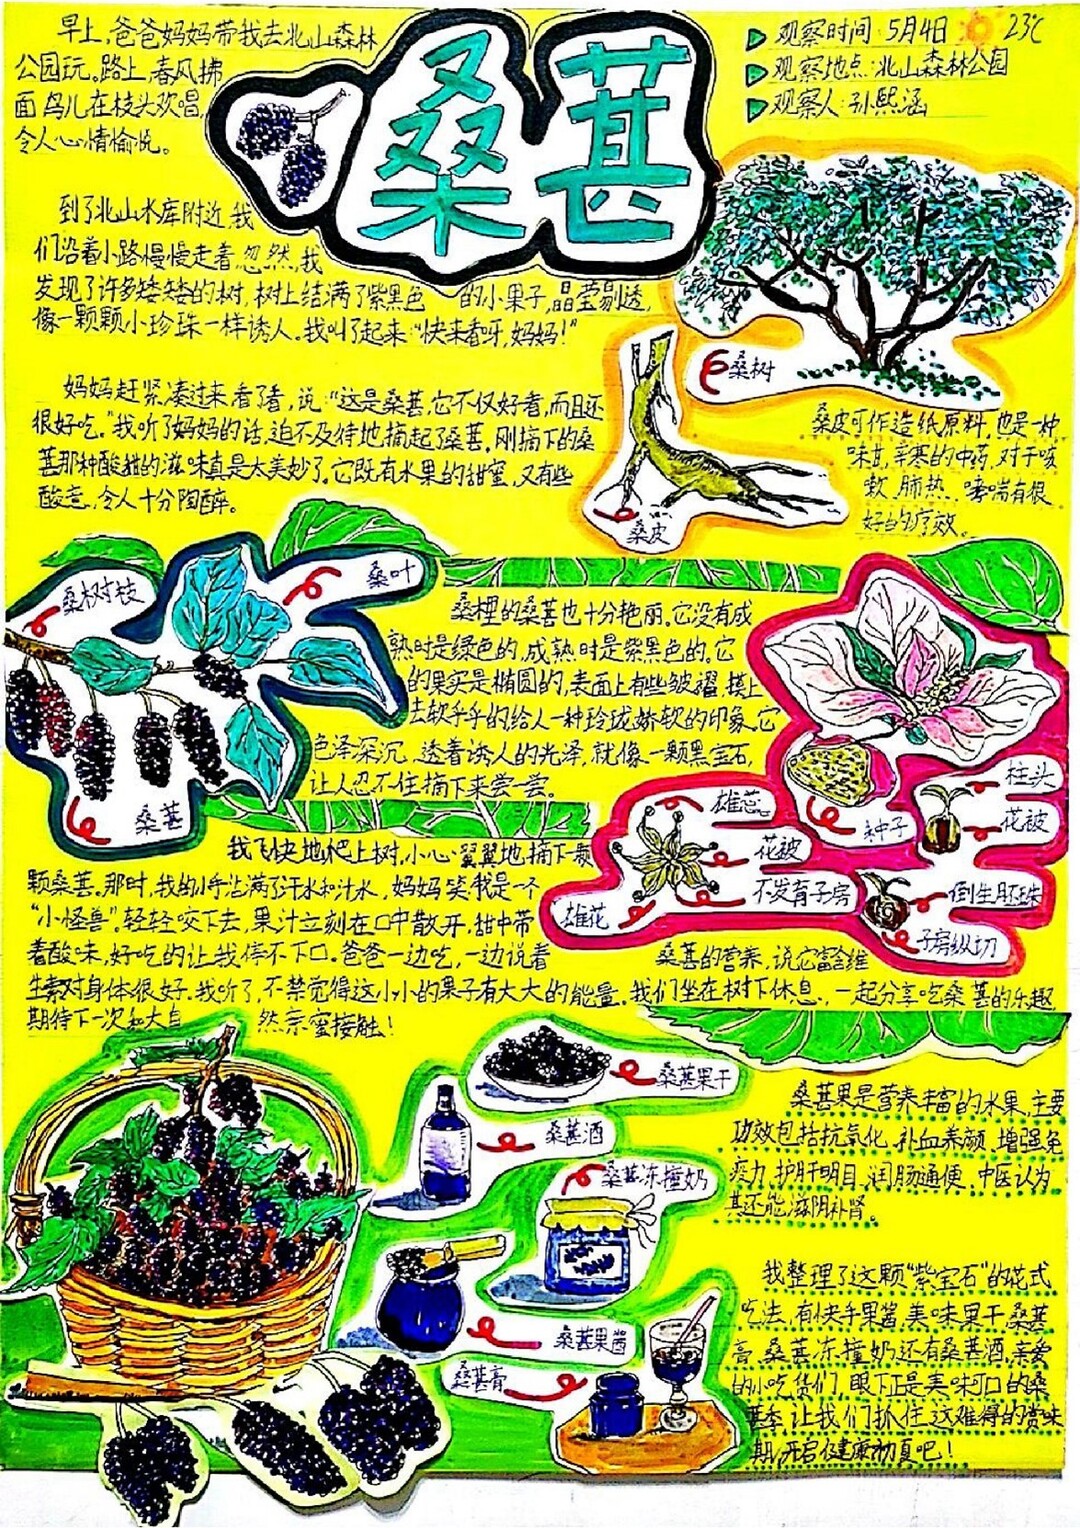 桑葚
早上,爸爸妈妈带我去北山森林
公园玩。路上,春风拂
面鸟儿在枝头欢唱,
令人心情愉悦。
▷ 观察时间:5月4日 23℃
▷ 观察地点:北山森林公园
▷ 观察人:孙熙涵
到了北山水库附近,我
们沿着小路慢慢走着忽然,我
发现了许多矮矮的树,树上结满了紫黑色的小果子,晶莹剔透,
像一颗颗小珍珠一样诱人。我叫了起来:“快来看呀,妈妈!”
妈妈赶紧凑过来看了看,说:“这是桑葚,它不仅好看,而且还
很好吃。”我听了妈妈的话,迫不及待地摘起了桑葚。刚摘下的桑
葚那种酸甜的滋味真是太美妙了。它既有水果的甜蜜,又有些
酸意,令人十分陶醉。
桑树
桑皮
桑皮可作造纸原料,也是一种
味甘,辛寒的中药,对于咳
嗽、肺热、哮喘有很
好的疗效。
桑树枝
桑叶
桑葚
桑树里的桑葚也十分艳丽。它没有成
熟时是绿色的,成熟时是紫黑色的。它
的果实是椭圆的,表面上有些皱褶,摸上
去软乎乎的给人一种玲珑娇软的印象。它
色泽深沉,透着诱人的光泽,就像一颗黑宝石,
让人忍不住摘下来尝一尝。
雄蕊
花被
不发育子房
雄花
种子
柱头
花被
倒生胚珠
子房纵切
我飞快地爬上树,小心翼翼地摘下一颗
颗桑葚。那时,我的小手沾满了汗水和汁水,妈妈笑我是一个
“小怪兽”。轻轻咬下去,果汁立刻在口中散开,甜中带
着酸味,好吃的让我停不下口。爸爸一边吃,一边说着
桑葚的营养,说它富含维
生素对身体很好。我听了,不禁觉得这小小的果子有大大的能量。我们坐在树下休息,一起分享吃桑葚的乐趣,
期待下一次和大自然亲密接触!
桑葚果干
桑葚酒
桑葚冻撞奶
桑葚果酱
桑葚膏
桑葚果是营养丰富的水果,主要
功效包括抗氧化、补血养颜、增强免
疫力、护肝明目、润肠通便、中医认为
其还能滋阴补肾。
我整理了这颗“紫宝石”的花式
吃法,有快手果酱,美味果干桑葚
膏、桑葚冻撞奶还有桑葚酒,亲爱
的小吃货们,眼下正是美味可口的桑
葚季,让我们抓住这难得的赏味
期,开启健康初夏吧!